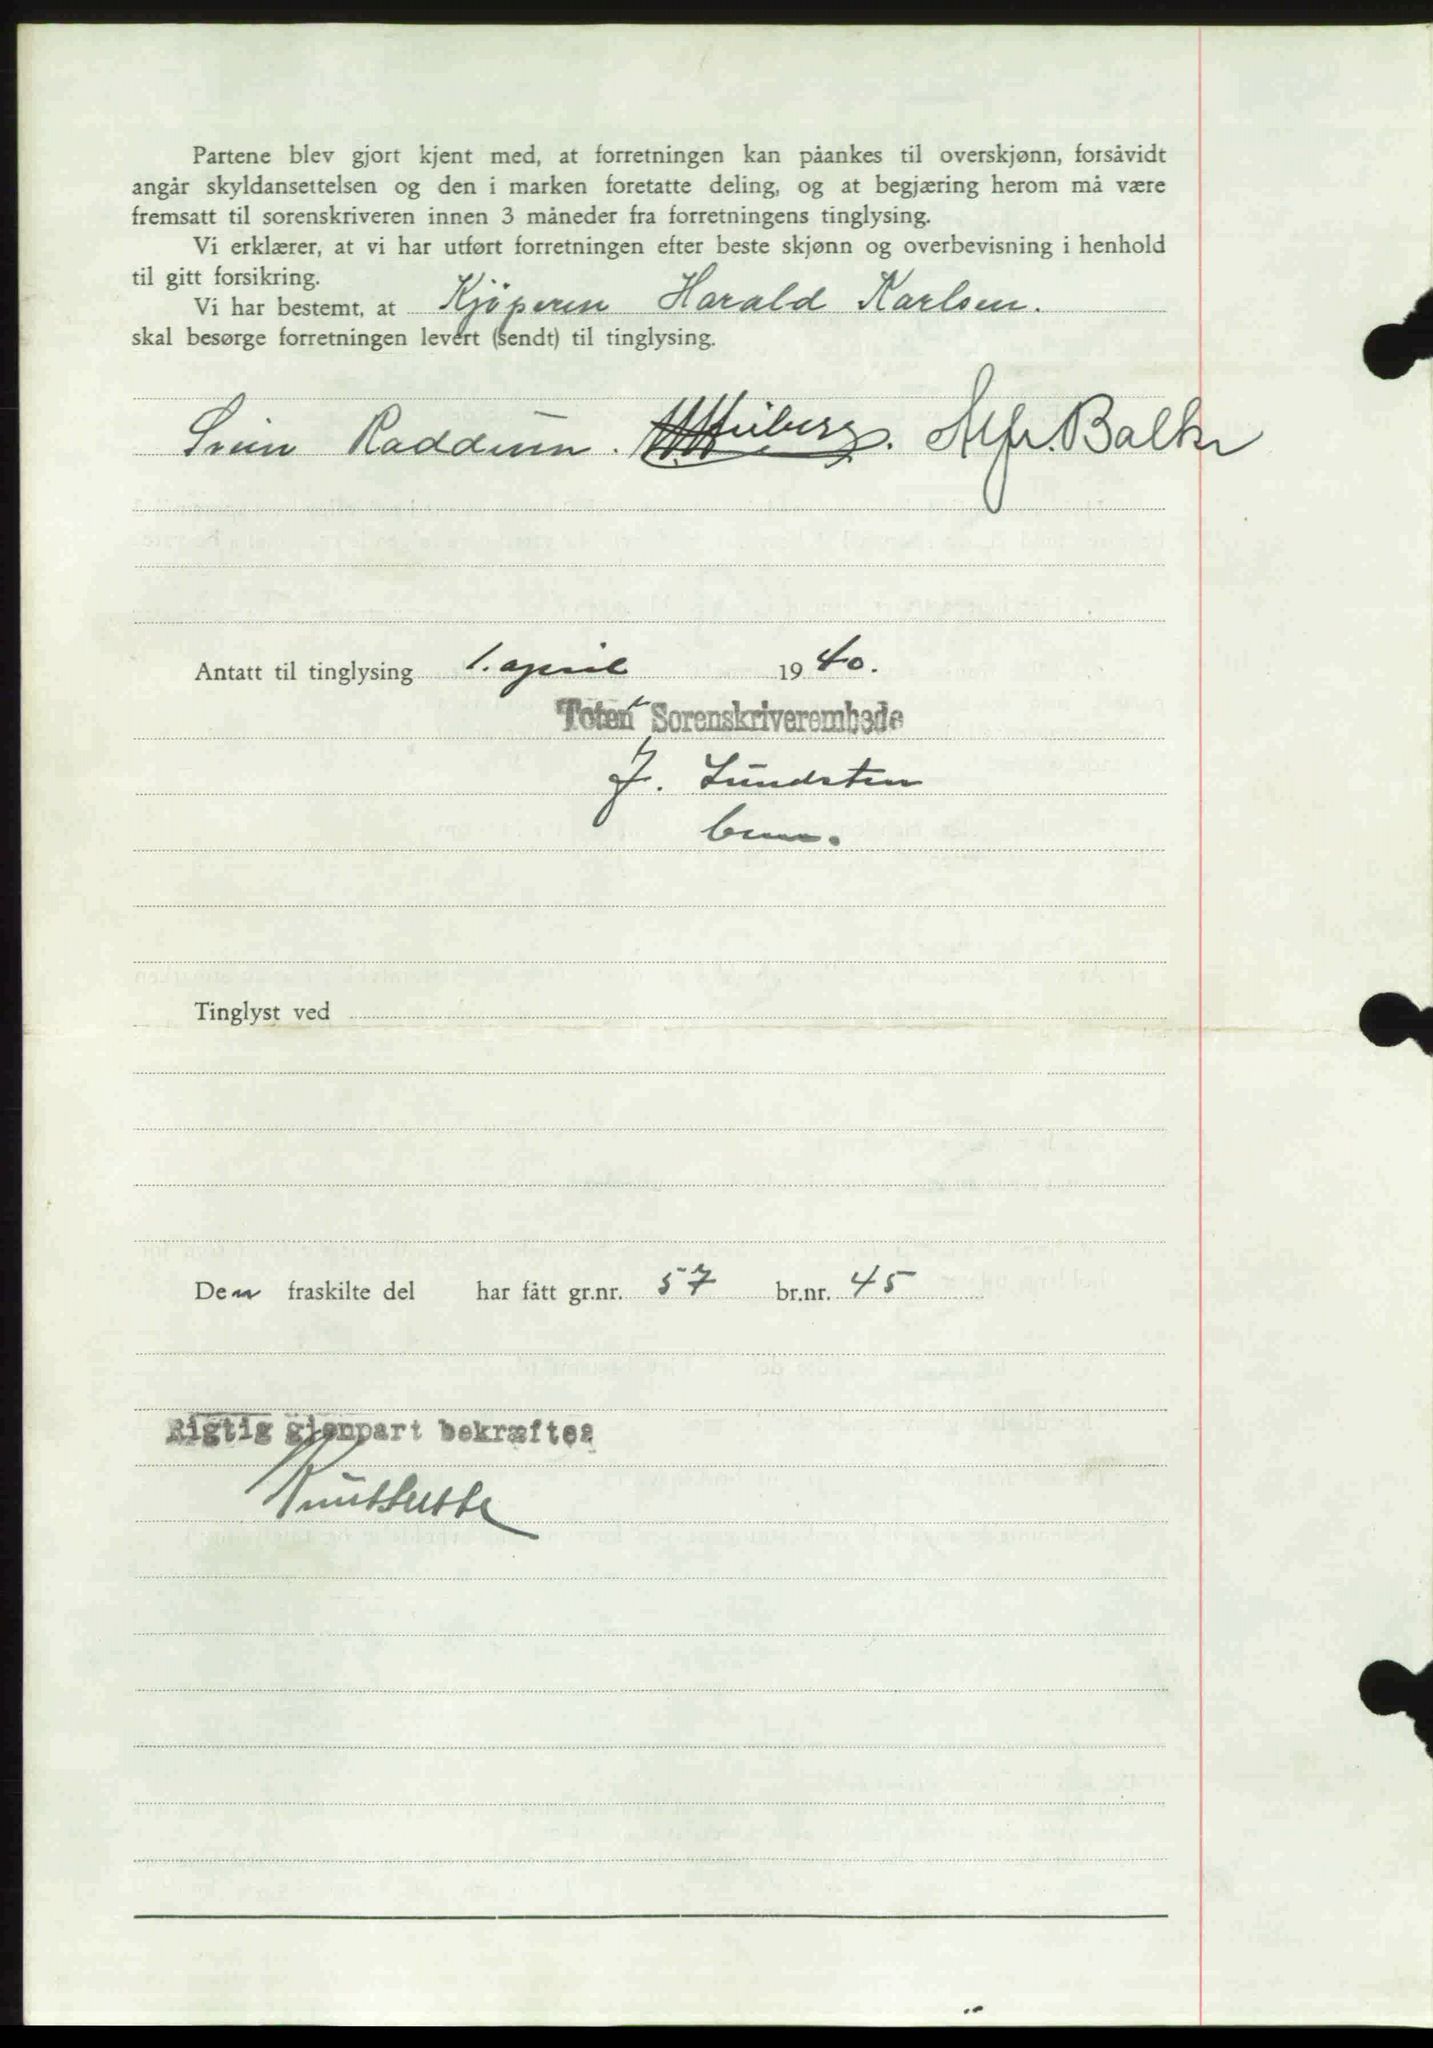 Partene blev gjort kjent med, at forretningen kan påankes til overskjønn, forsåvidt
angår skyldansettelsen og den i marken foretatte deling, og at begjæring herom må være
fremsatt til sorenskriveren innen 3 måneder fra forretningens tinglysing.
Vi erklærer, at vi har utført forretningen efter beste skjønn og overbevisning i henhold
til gitt forsikring.
Vi har bestemt, at Kjøperen Harald Karlsen.
skal besørge forretningen levert (sendt) til tinglysing.
Svein Raddum. Alfr. Balke
Antatt til tinglysing 1. april 1940.
Toten Sorenskriverembede
J. Lundsten
Tinglyst ved
Den fraskilte del har fått gr.nr. 57 br.nr. 45
Rigtig gjenpart bekræftes